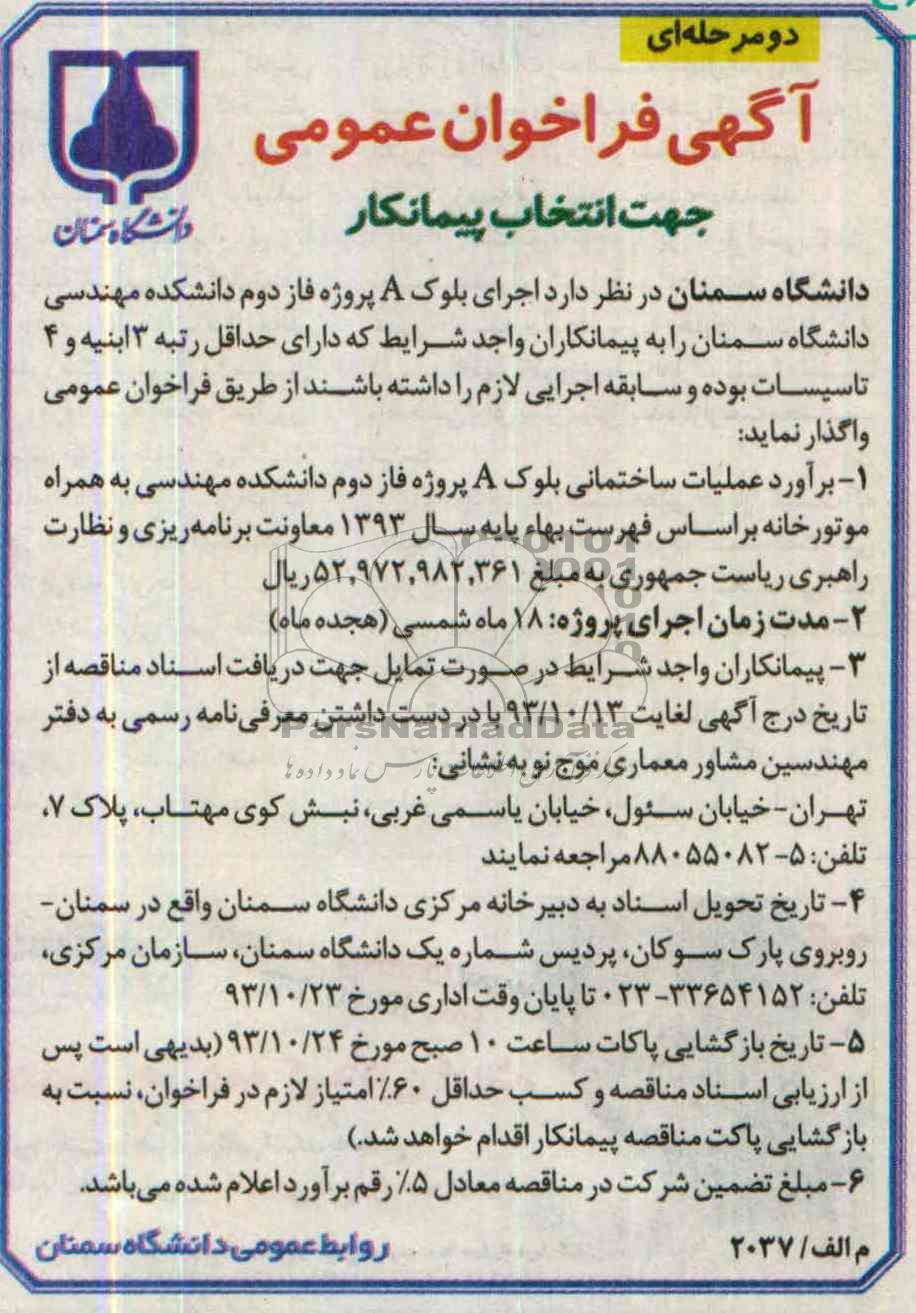 دومرحله‌ای
آگهی فراخوان عمومی
جهت انتخاب پیمانکار
دانشگاه سمنان
دانشگاه سمنان در نظر دارد اجرای بلوک A پروژه فاز دوم دانشکده مهندسی
دانشگاه سمنان را به پیمانکاران واجد شرایط که دارای حداقل رتبه ۳ ابنیه و ۴
تاسیسات بوده و سابقه اجرایی لازم را داشته باشند از طریق فراخوان عمومی
واگذار نماید:
۱- برآورد عملیات ساختمانی بلوک A پروژه فاز دوم دانشکده مهندسی به همراه
موتورخانه براساس فهرست بهاء پایه سال ۱۳۹۳ معاونت برنامه‌ریزی و نظارت
راهبری ریاست جمهوری به مبلغ ۵۲,۹۷۲,۹۸۲,۳۶۱ ریال
۲- مدت زمان اجرای پروژه: ۱۸ ماه شمسی (هجده ماه)
۳- پیمانکاران واجد شرایط در صورت تمایل جهت دریافت اسناد مناقصه از
تاریخ درج آگهی لغایت ۹۳/۱۰/۱۳ با در دست داشتن معرفی‌نامه رسمی به دفتر
ParsNamadData
مهندسین مشاور معماری موج نو به نشانی:
تهران- خیابان سئول، خیابان یاسمی غربی، نبش کوی مهتاب، پلاک ۷،
تلفن: ۵-۸۸۰۵۵۰۸۲ مراجعه نمایند
۴- تاریخ تحویل اسناد به دبیرخانه مرکزی دانشگاه سمنان واقع در سمنان-
روبروی پارک سوکان، پردیس شماره یک دانشگاه سمنان، سازمان مرکزی،
تلفن: ۳۳۶۵۴۱۵۲-۰۲۳ تا پایان وقت اداری مورخ ۹۳/۱۰/۲۳
۵- تاریخ بازگشایی پاکات ساعت ۱۰ صبح مورخ ۹۳/۱۰/۲۴ (بدیهی است پس
از ارزیابی اسناد مناقصه و کسب حداقل ۶۰٪ امتیاز لازم در فراخوان، نسبت به
بازگشایی پاکت مناقصه پیمانکار اقدام خواهد شد.)
۶- مبلغ تضمین شرکت در مناقصه معادل ۵٪ رقم برآورد اعلام شده می‌باشد.
م الف/ ۲۰۳۷
روابط عمومی دانشگاه سمنان